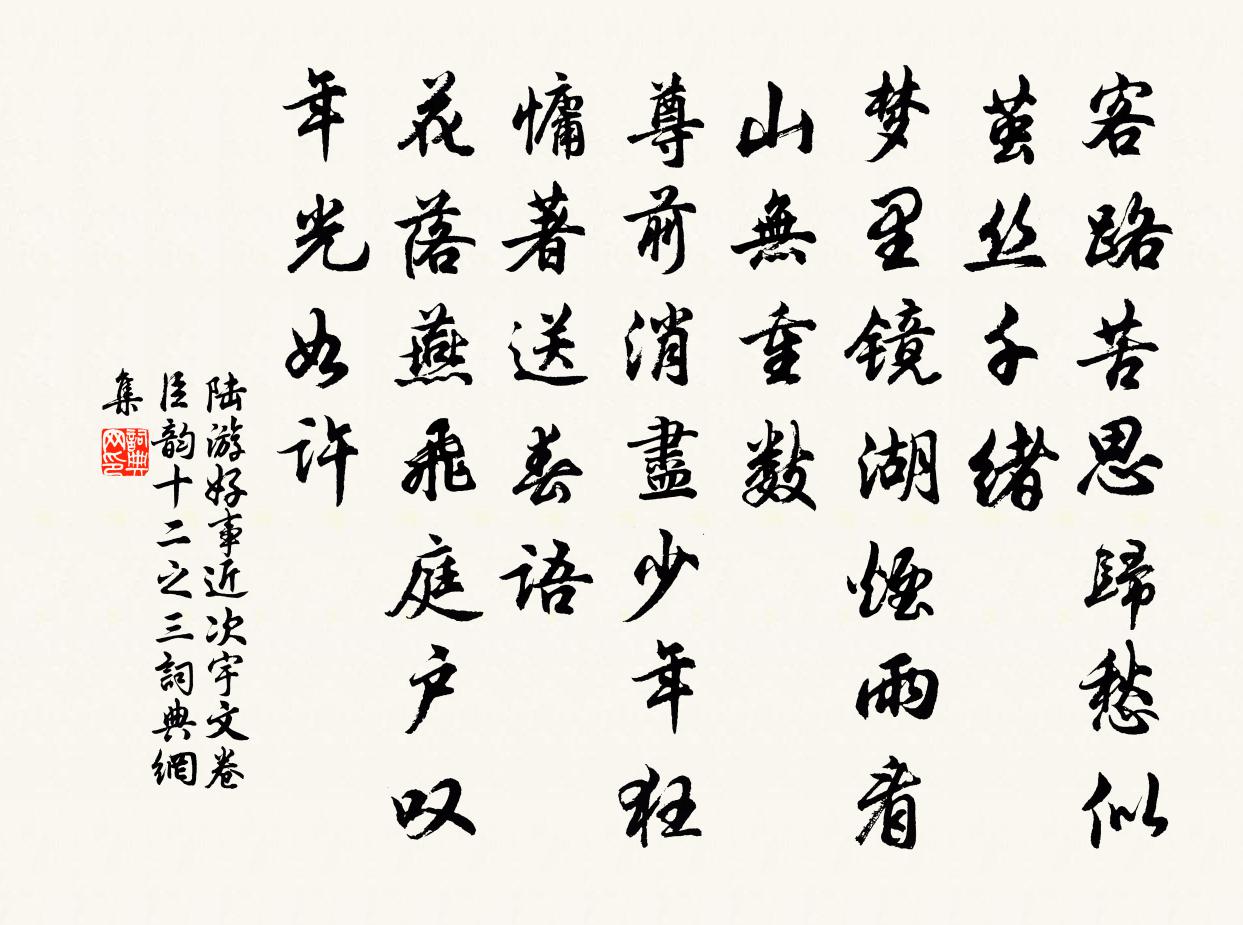 客路苦思歸愁似
茧丝千绪
梦里镜湖煙雨看
山無重数
尊前消盡少年狂
慵著送春语
花落燕飛庭户叹
年光如许
陆游好事近次宇文卷
臣韵十二之三詞典網
集
詞典
网印